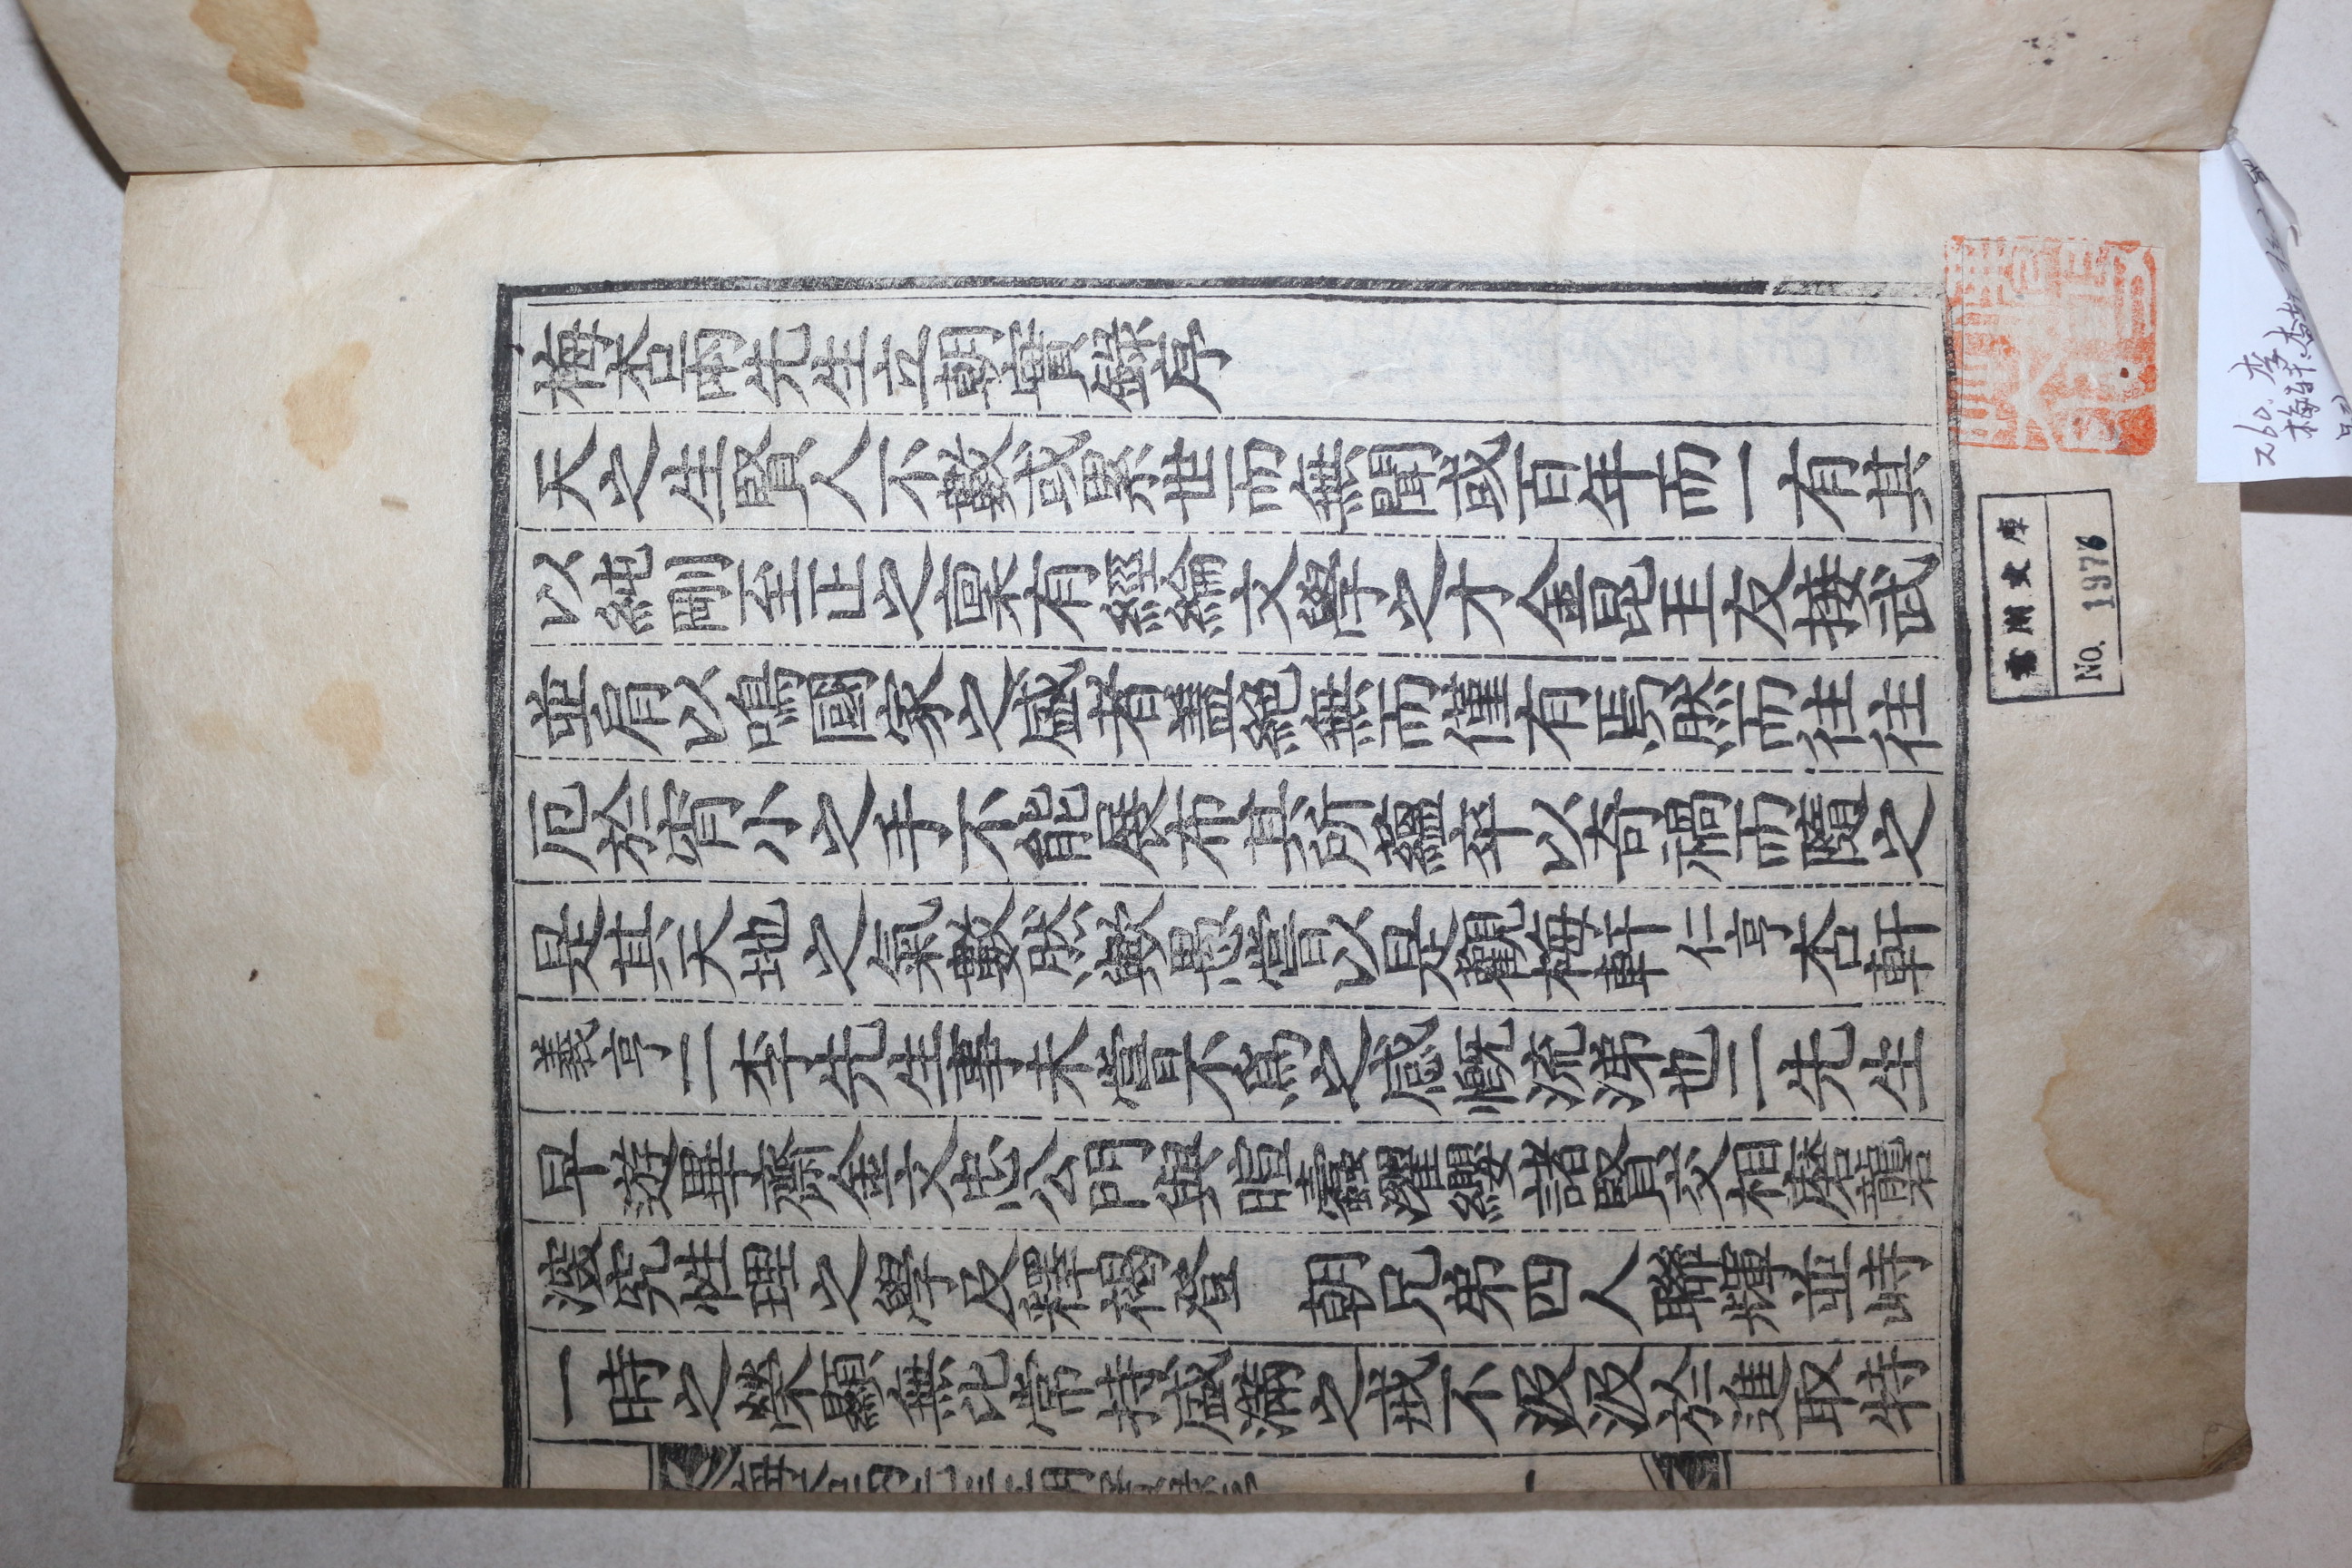 梅杏兩先生立朝實錄序
天之生賢人不數或累世而無聞或百年而一有其
以純剛至正之稟有經綸文學之才金昆玉友接武
並肩以鳴國家之盛者蓋絶無而僅有焉然而往往
厄於宵小之手不能展布其所蘊卒以奇禍而隨之
是其天地之氣數然歟愚嘗以是觀梅軒仁亨杏軒
義亨二李先生事未嘗不爲之感慨流涕也二先生
早遊畢齋金文忠公門與暄蠹濯纓諸賢交相磨礱
漫究性理之學及釋褐登 朝兄弟四人聯輝並峙
一時之榮顯無比常持盛滿之戒不汲汲於進取特
文庫
No. 1976
260. 李
梅軒.杏軒